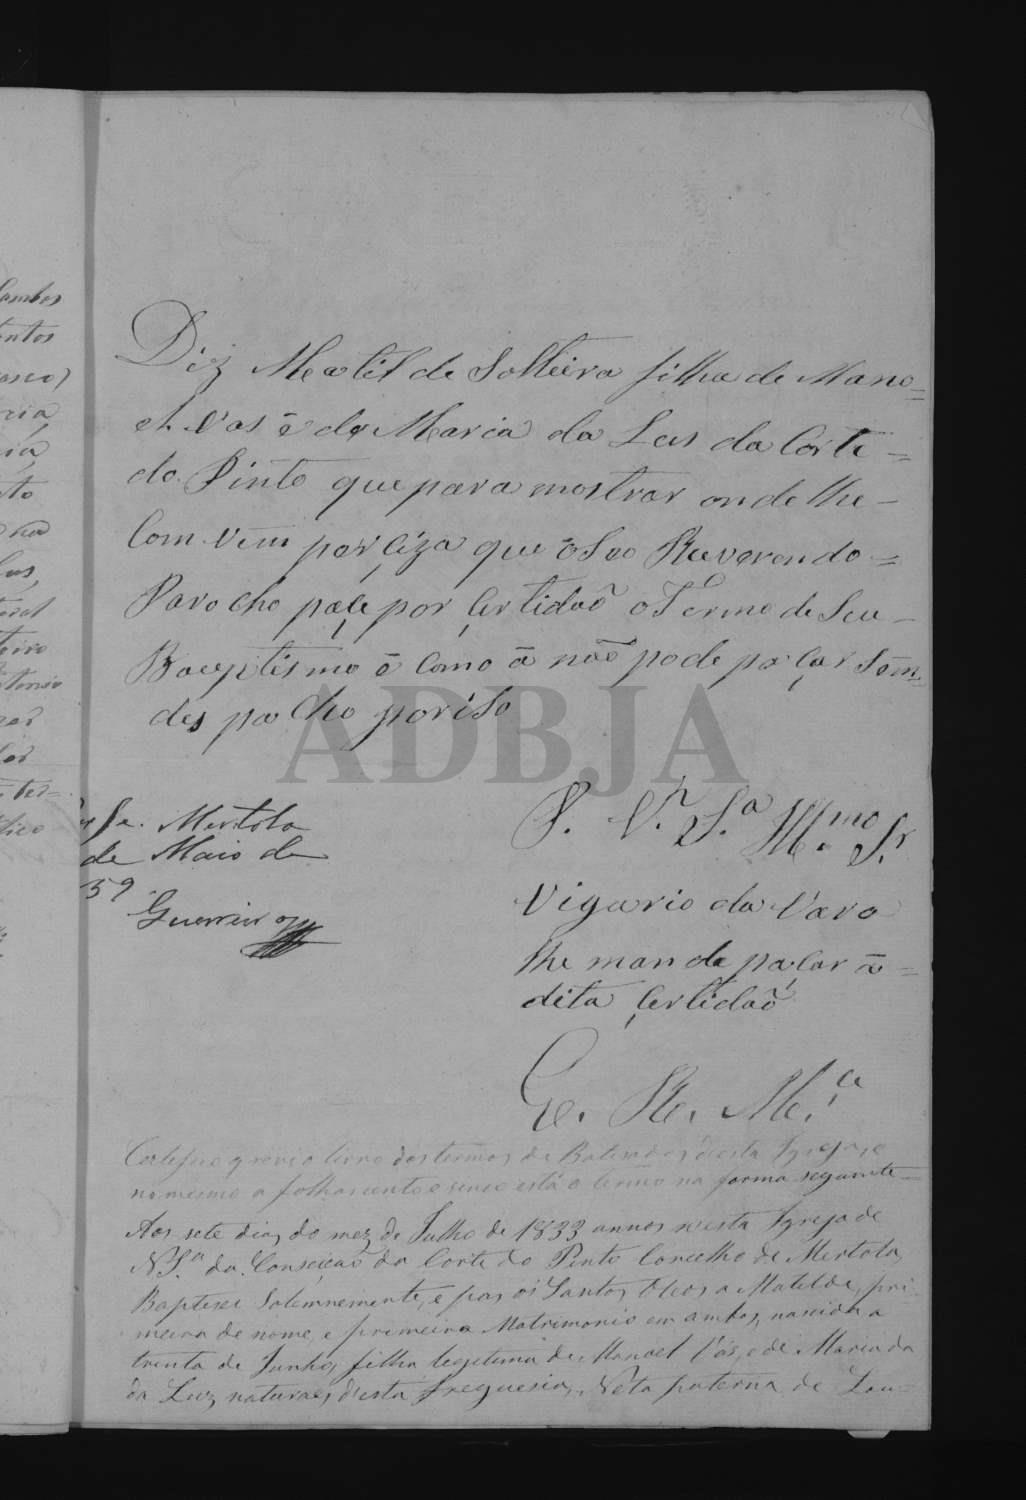 Diz Matilde Solteira filha de Mano=
el Vas ē de Maria da Lus da Corte=
do Pinto que para mostrar onde lhe-
Com vem perçiza que o Seo Reverendo=
Parocho paçe por Çertidaõ o Termo de Seu-
Baeptismo ē Como ā naõ pode paçar Sem
des pacho poriso
P. V.ª S.ª Ill.mo S.r
Vigario da Vara
lhe mande paçar ā=
dita Çertidaõ
E. R. M.ce
Passe. Mertola
de Maio de
59
Guerreiro
Certefico q revio livro dos termos de Batizados d'esta Igreja, e
no mesmo a folhas cento e cinco está o termo na forma seguinte=
Aos sete dias do mez de Julho de 1833 annos n'esta Igreja de
N. S.ra da Conseiçaõ da Corte do Pinto Concelho de Mertola,
Baptisei Solemnemente, e pus os Santos Oleos a Matilde, pri-
meira de nome, e primeira Matrimonio em ambos, nascida a
trinta de Junho, filha legitima de Manoel Vás, e de Maria da
da Luz, naturaes d'esta freguesia, Neta paterna de Lou=
Lambos
entos
ADBJA